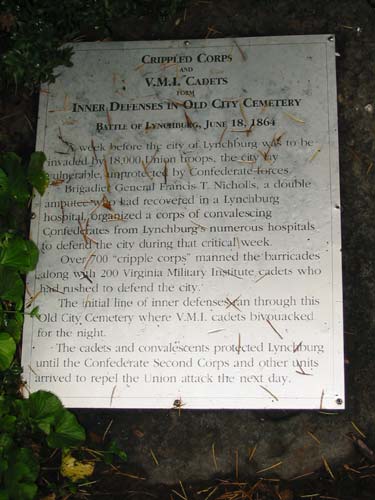 Crippled Corps
and
V.M.I. Cadets
form
Inner Defenses in Old City Cemetery
Battle of Lynchburg, June 18, 1864
A week before the city of Lynchburg was to be
invaded by 18,000 Union troops, the city lay
vulnerable, unprotected by Confederate forces.
Brigadier General Francis T. Nicholls, a double
amputee who had recovered in a Lynchburg
hospital, organized a corps of convalescing
Confederates from Lynchburg's numerous hospitals
to defend the city during that critical week.
Over 700 "cripple corps" manned the barricades
along with 200 Virginia Military Institute cadets who
had rushed to defend the city.
The initial line of inner defenses ran through this
Old City Cemetery where V.M.I. cadets bivouacked
for the night.
The cadets and convalescents protected Lynchburg
until the Confederate Second Corps and other units
arrived to repel the Union attack the next day.